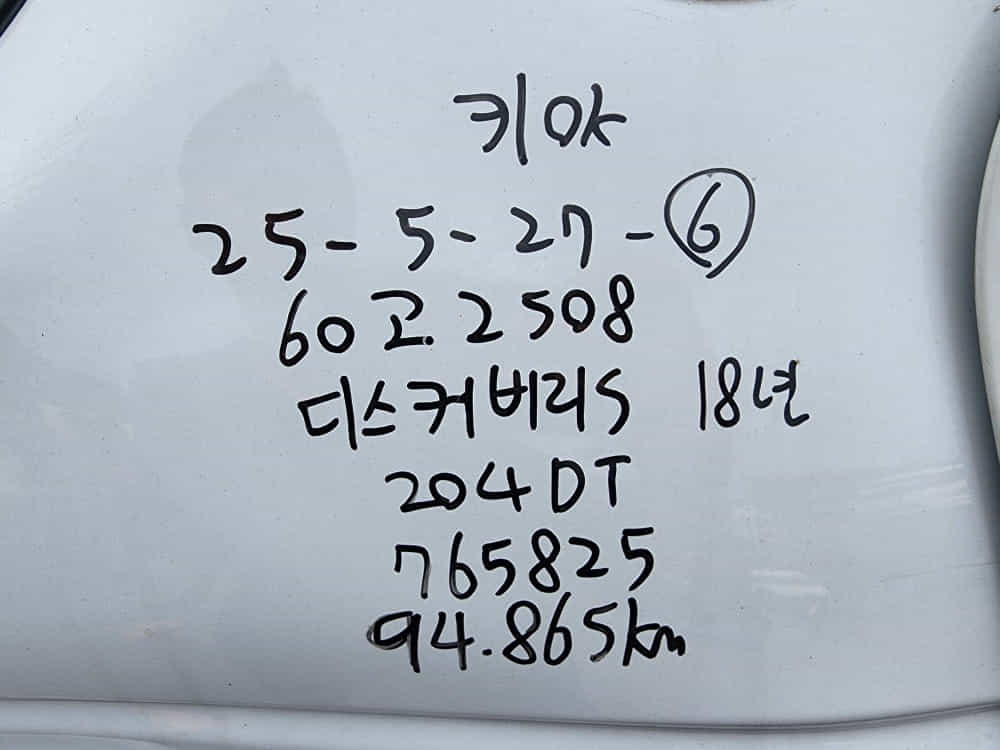 키OK
25-5-27-⑥
60고.2508
디스커버리S 18년
204DT
765825
94.865km